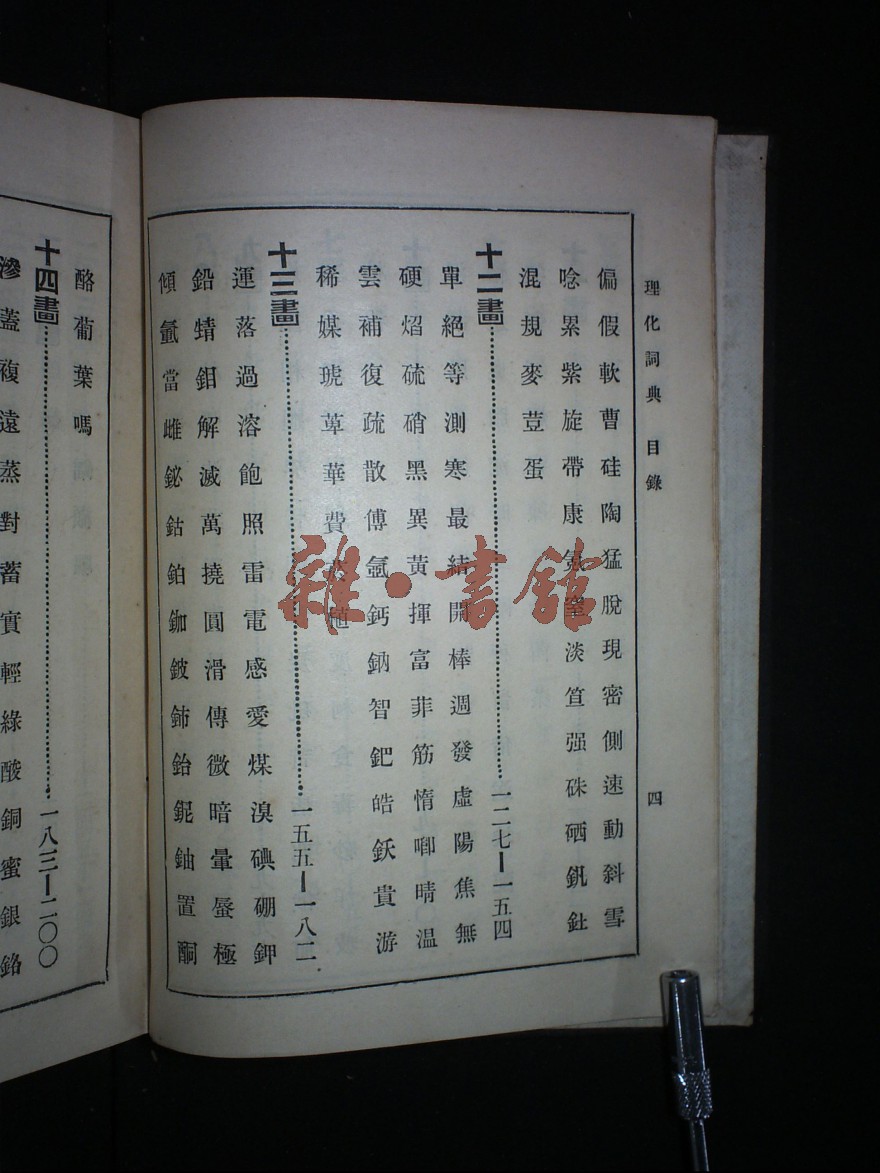 理化詞典 目錄 四
偏假軟曹硅陶猛脫現密側速動斜雪
唸累紫旋帶康氣窒淡笪强硃硒釩釷
混規麥荳蛋
十二畫 一二七—一五四
單絕等測寒最結開棒週發虛陽焦無
硬焰硫硝黑異黃揮富菲筋惰唧晴溫
雲補復疏散傅氫鈣鈉智鈀皓鈇貴游
稀媒琥萆華費植
十三畫 一五五—一八二
運落過溶飽照雷電感愛煤溴碘硼鉀
鉛蜻鉬解滅萬撓圓滑傳微暗暈蜃極
傾氬當雌鉍鈷鉑鉫鈹鈰鉿鈮鈾置酮
酪葡葉嗎
十四畫 一八三—二〇〇
滲蓋複遠蒸對蓄實輕綠酸銅蜜銀鉻
雜·書館